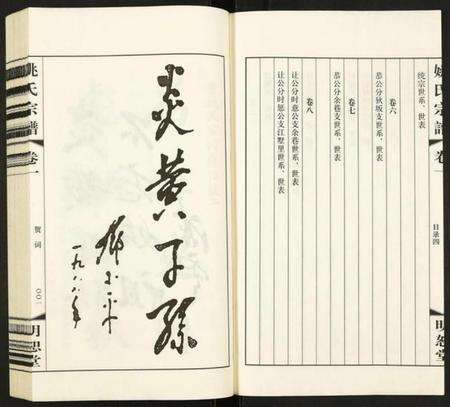 姚氏宗譜
卷一
目录四
明恕堂
统宗世系、世表
卷六
恭公分狄坂支世系、世表
卷七
恭公分余巷支世系、世表
卷八
让公分时意公支余巷世系、世表
让公分时思公支江墅里世系、世表
炎黄子孫
一九八八年
姚氏宗譜
卷一
贺词
〇〇一
明恕堂